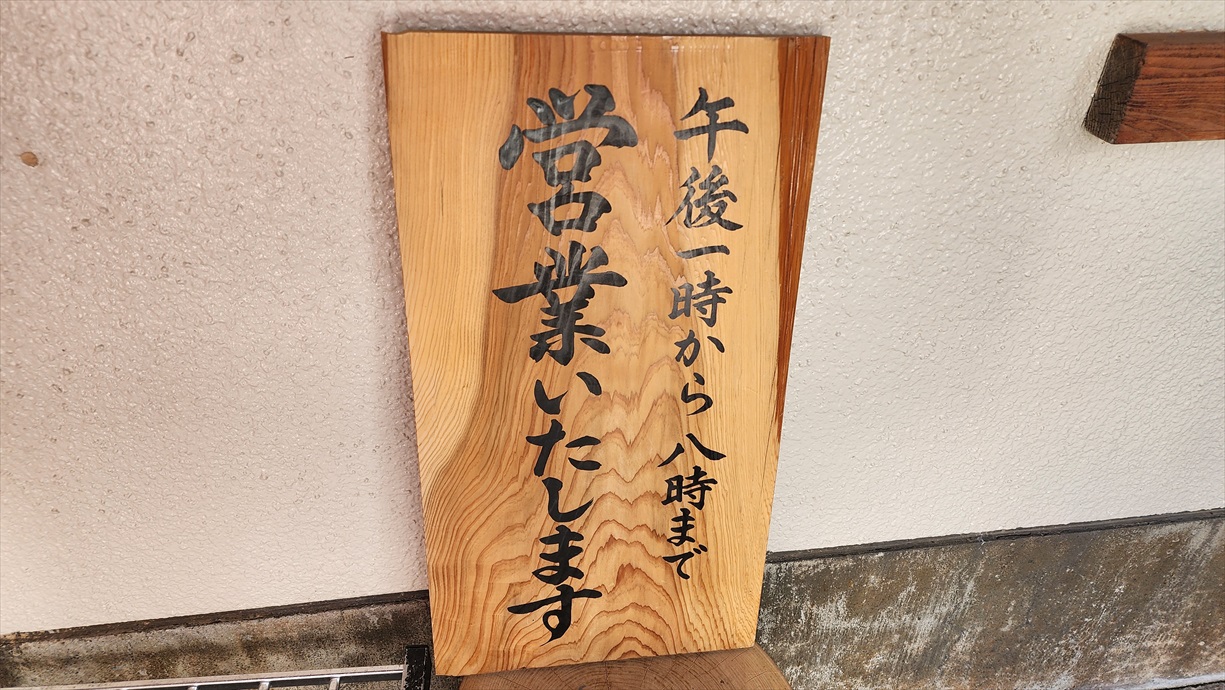 午後一時から八時まで
営業いたします